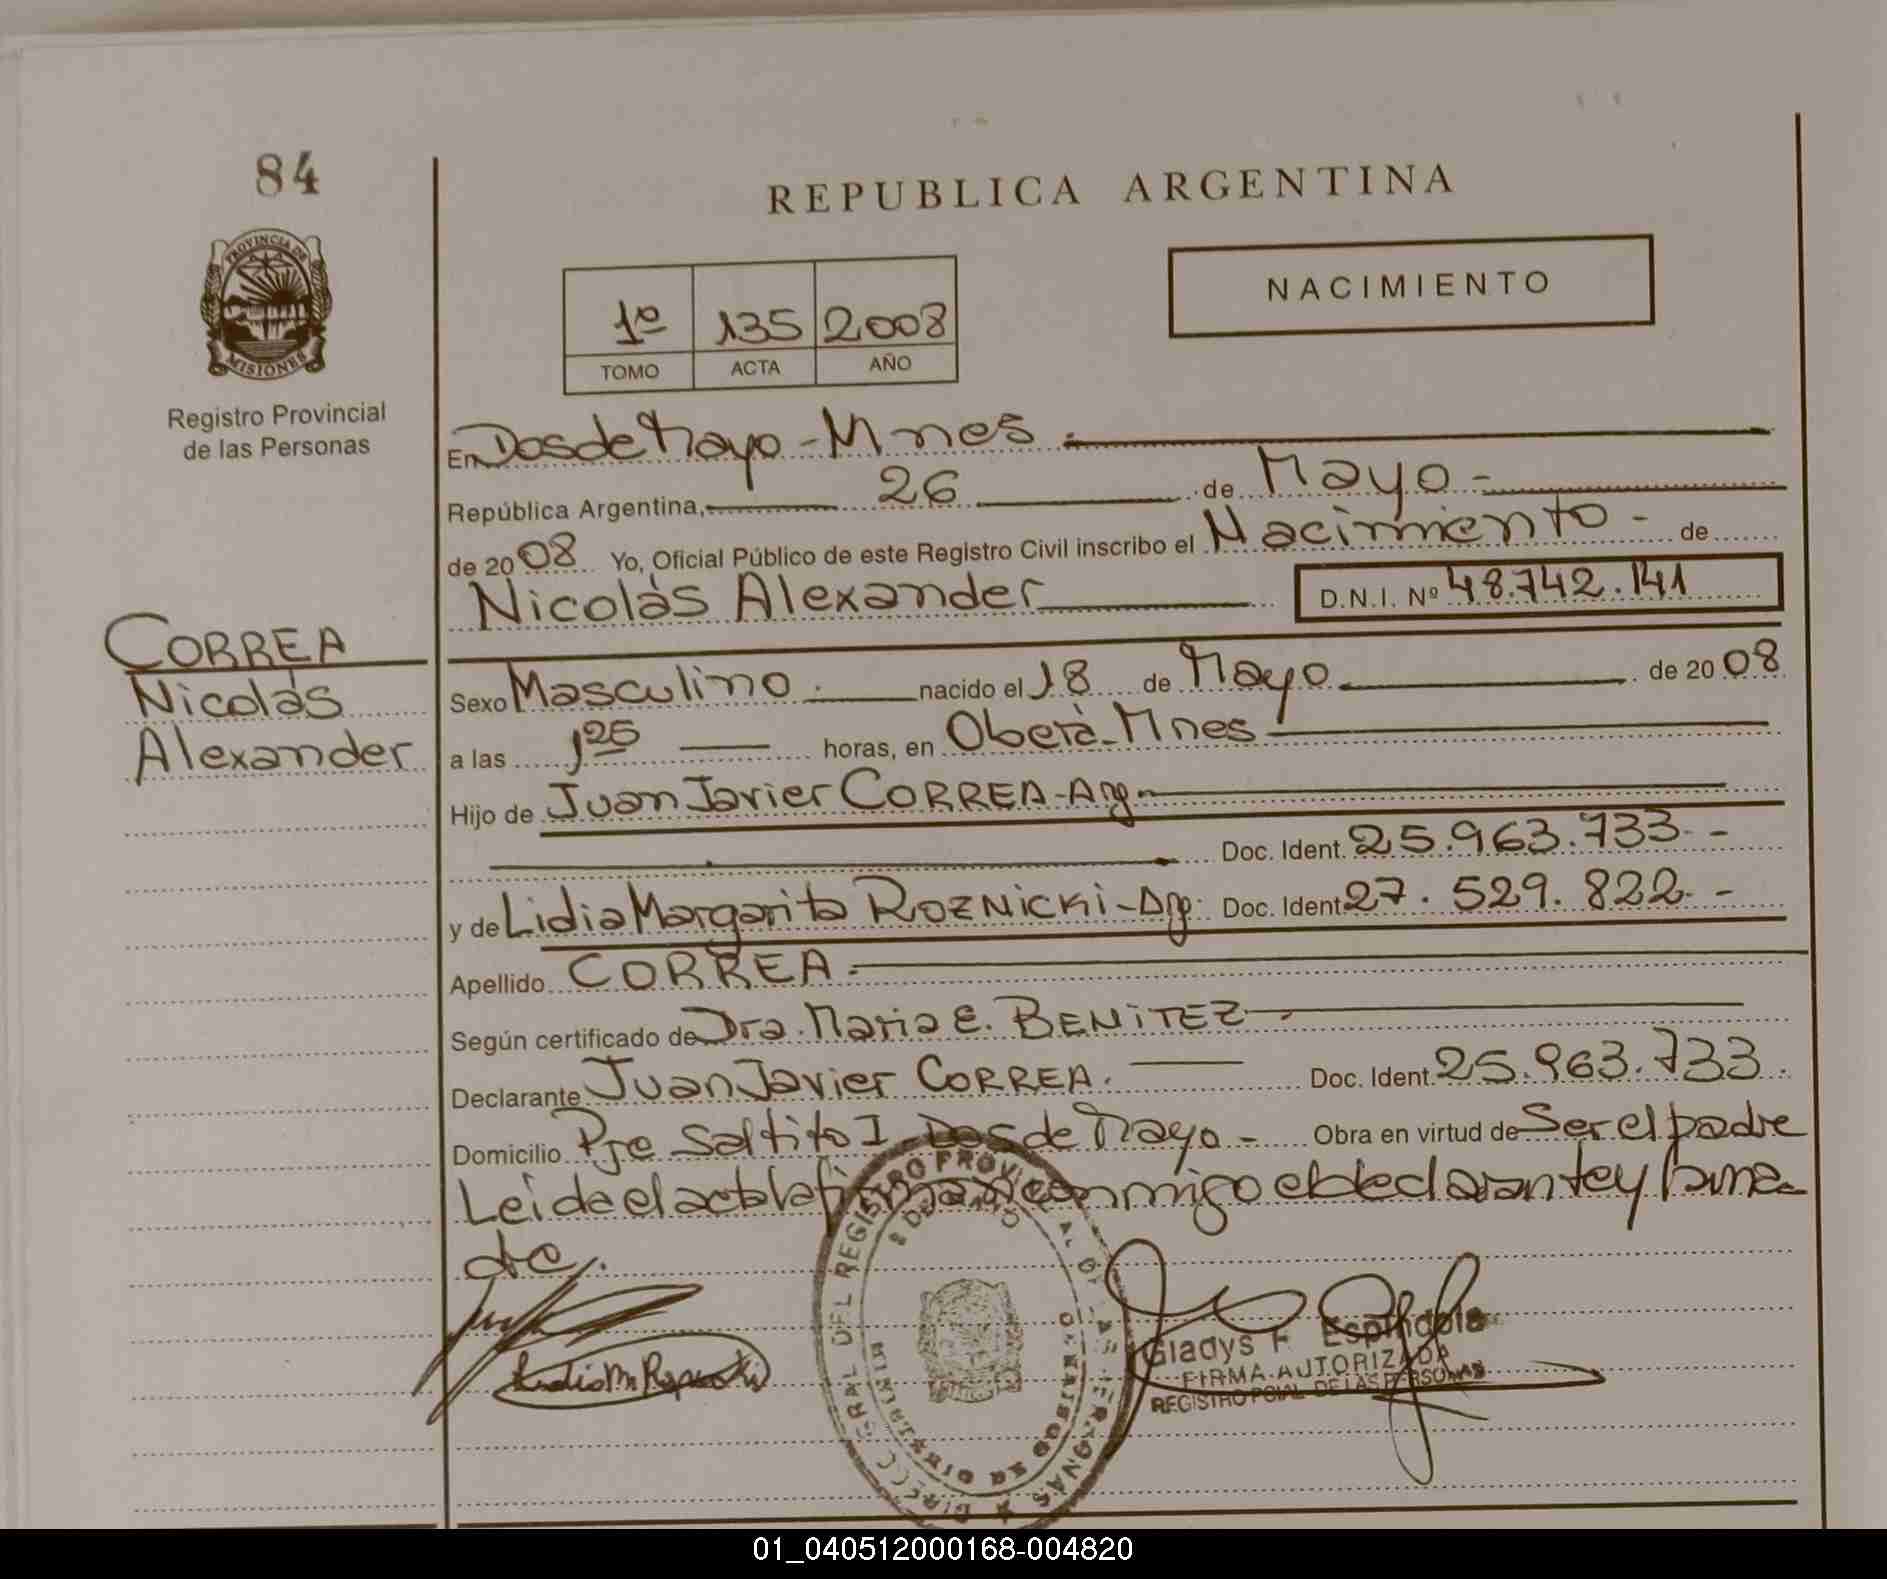 84
REPUBLICA ARGENTINA
PROVINCIA DE
MISIONES
Registro Provincial
de las Personas
NACIMIENTO
1º 135 2008
TOMO ACTA AÑO
En Dos de Mayo - Mnes.
República Argentina, 26 de Mayo -
de 2008 Yo, Oficial Público de este Registro Civil inscribo el Nacimiento - de
Nicolás Alexander D.N.I. Nº 48.742.141
CORREA
Nicolás
Alexander
Sexo Masculino. nacido el 18 de Mayo de 2008
a las 1 25 horas, en Oberá - Mnes
Hijo de Juan Javier CORREA - Arg -
Doc. Ident. 25.963.733 -
y de Lidia Margarita ROZNICKI - Arg. Doc. Ident. 27.529.822 -
Apellido CORREA.
Según certificado de Dra. Maria E. BENITEZ -
Declarante Juan Javier CORREA. Doc. Ident. 25.963.733.
Domicilio Pje Saltito I - Dos de Mayo - Obra en virtud de Ser el padre
Leida el acta la firman conmigo el declarante y la ma-
dre.
Gladys F. Espindola
FIRMA AUTORIZADA
REGISTRO PCIAL. DE LAS PERSONAS
01_040512000168-004820